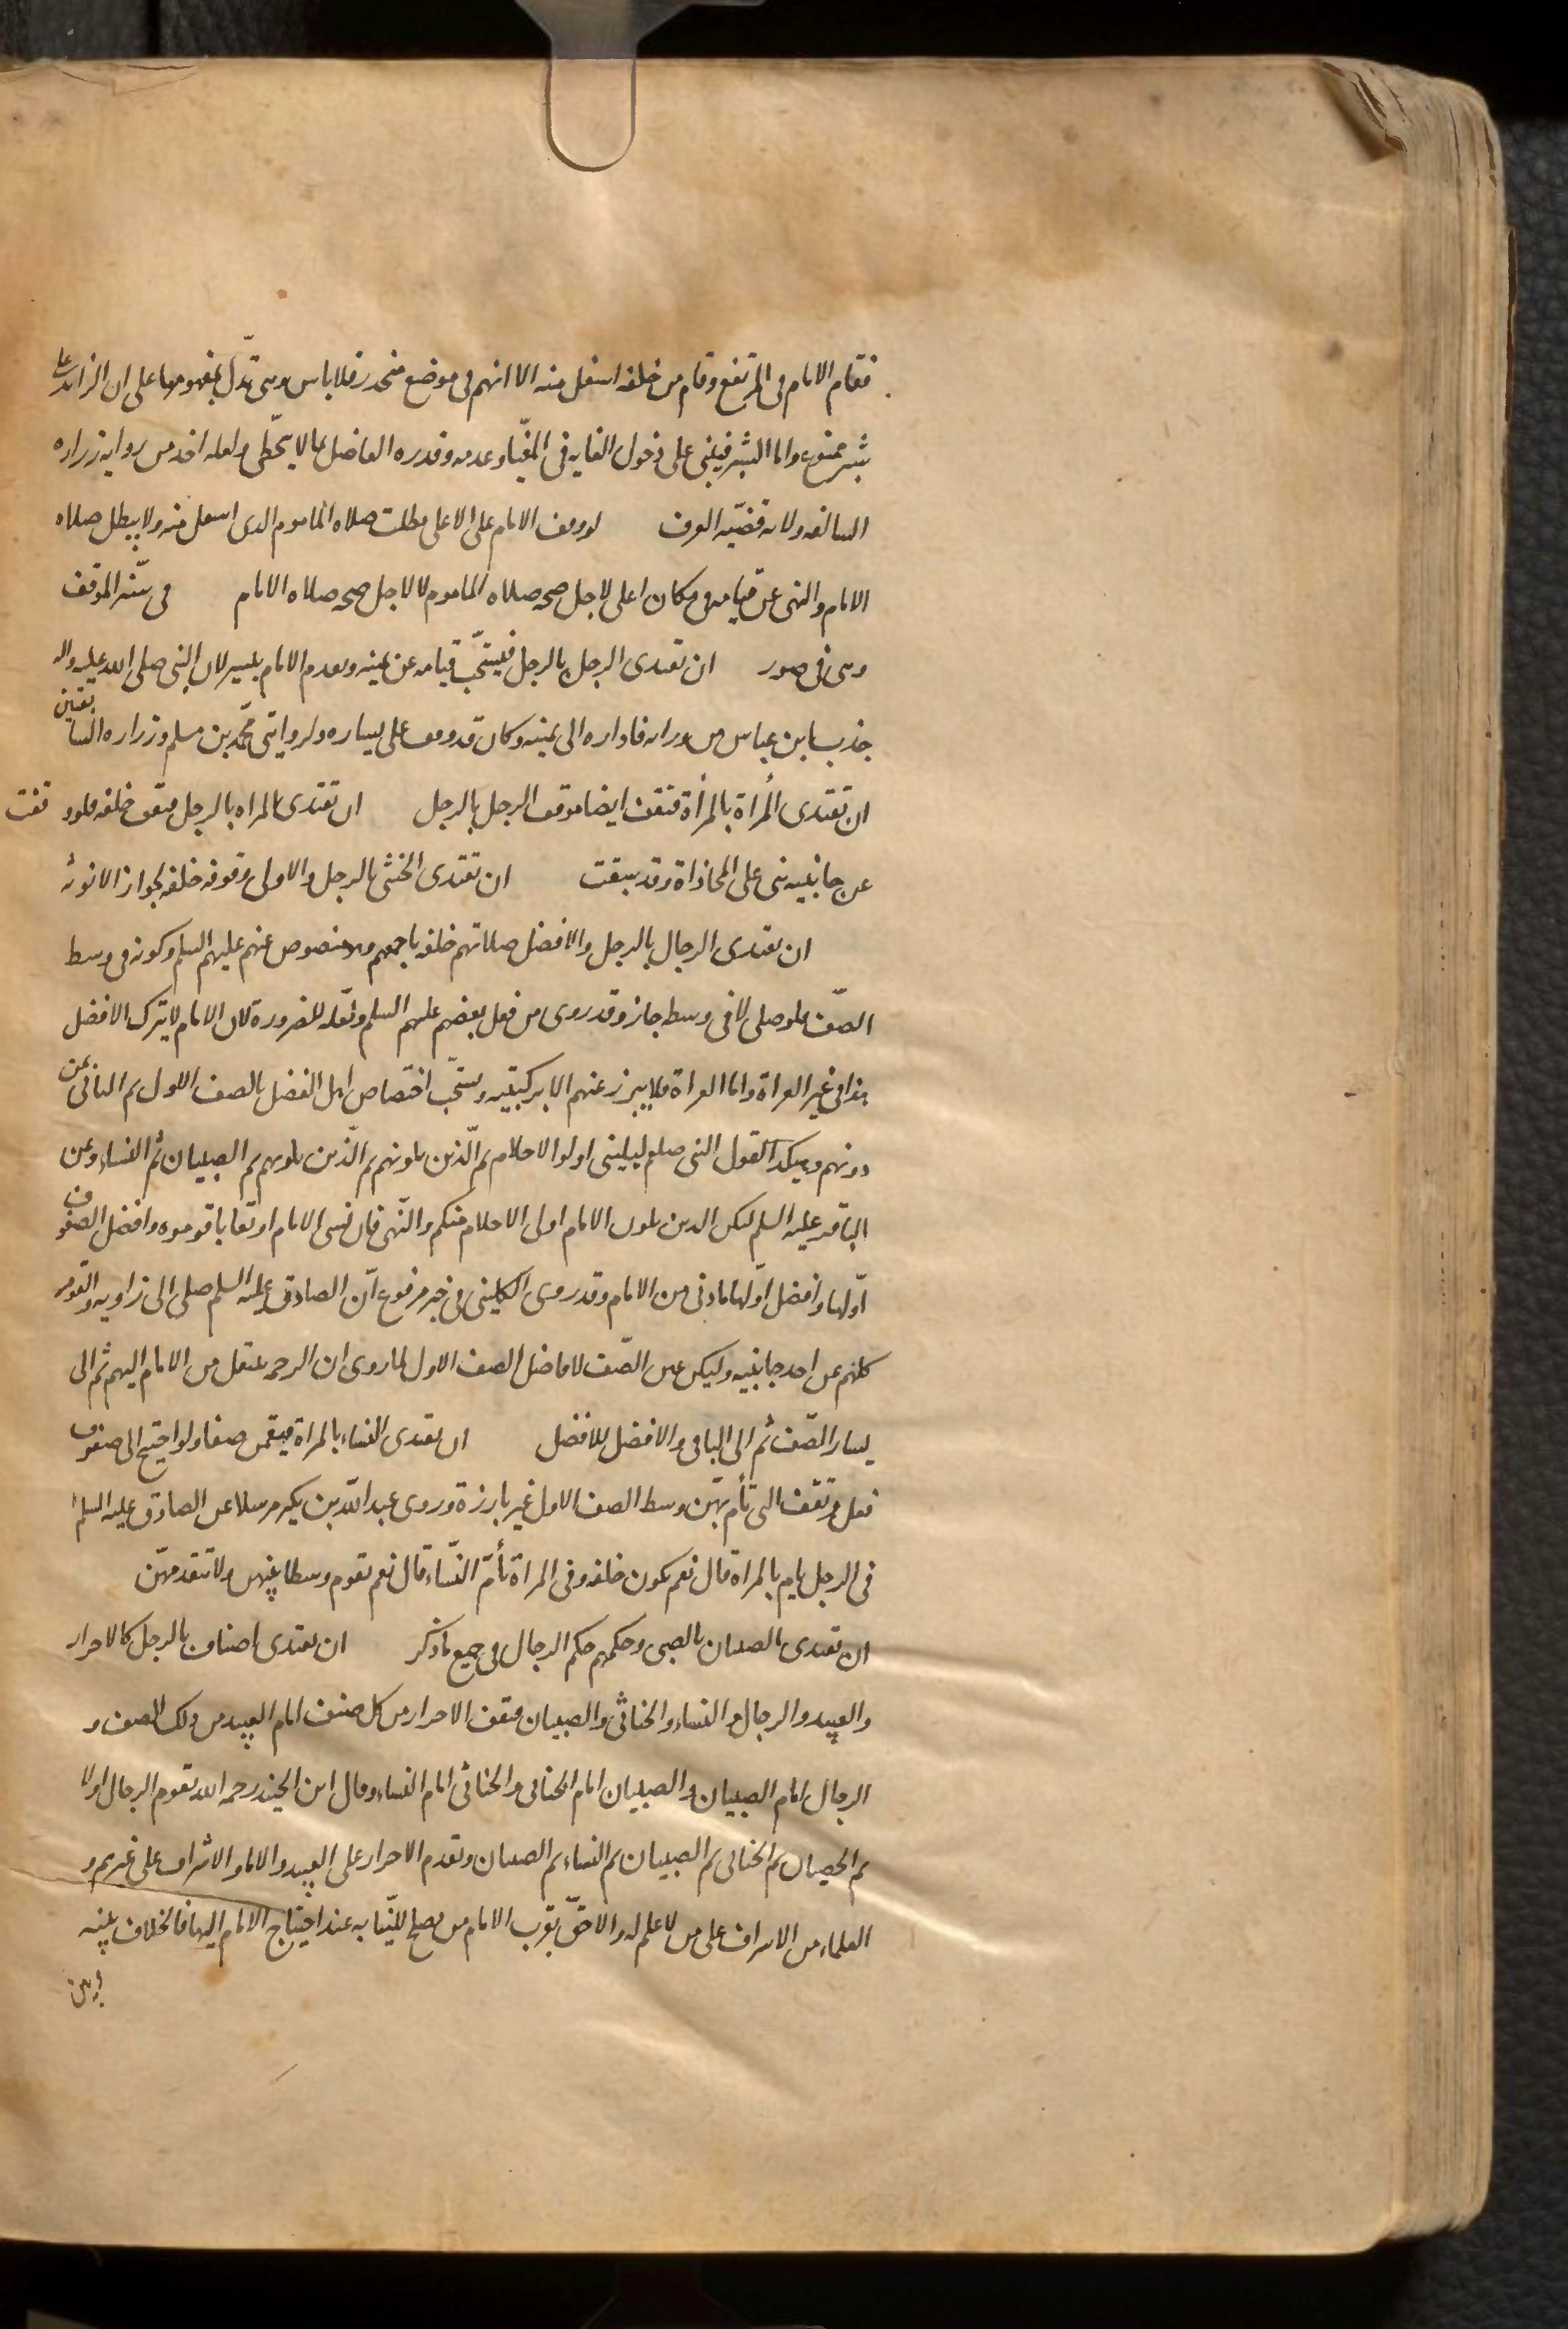 فقام الامام فى المرتفع وقام من خلفه اسفل منه الا انهم فى موضع منحدر فلا باس وهى تدل بمفهومها على ان الزائد على
شبر ممنوع واما الشبر فيبنى على دخول الغايه فى المغيا وعدمه وقدره الفاضل بما لا يتخطى ولعله اخذ من روايه زراره
السالفه ولانه قضيه العرف لو وقف الامام على الاعلى بطلت صلاه الماموم الذى اسفل منه ولا يبطل صلاه
الامام والنهى عن قيامه فى مكان اعلى لاجل صحه صلاه الماموم لا لاجل صحه صلاه الامام فى سنه الموقف
وهى فى صور ان تقتدى الرجل بالرجل فيستحب قيامه عن يمينه وتقدم الامام بيسير لان النبى صلى الله عليه واله
جذب ابن عباس من ورائه فاداره الى يمينه وكان قد وقف على يساره ولروايتى محمد بن مسلم وزراره السابقتين
ان تقتدى المرأة بالمرأة فتقف ايضا موقف الرجل بالرجل ان تقتدى المراه بالرجل فتقف خلفه فلو وقفت
عن جانبيه بنى على المحاذاة وقد سبقت ان تقتدى الخنثى بالرجل والاولى وقوفه خلفه لجواز الانوثه
ان يقتدى الرجال بالرجل والافضل صلاتهم خلفه باجمعهم وهو منصوص عنهم عليهم السلم وكونه فى وسط
الصف فلو صلى لا فى وسط جاز وقد روى من فعل بعضهم عليهم السلم ولعله للضرورة لان الامام لا يترك الافضل
هذا فى غير العراة واما العراة فلا يبرز عنهم الا بركبتيه ويستحب اختصاص اهل الفضل بالصف الاول ثم الثانى بمن
دونهم وهكذا لقول النبى صلعم ليلينى اولوا الاحلام ثم الذين يلونهم ثم الذين يلونهم ثم الصبيان ثم النساء وعن
الباقر عليه السلم ليكن الذين يلون الامام اولى الاحلام منكم والنهى فان نسى الامام او تعايا قوموه وافضل الصفوف
اولها وافضل اولها ما دنى من الامام وقد روى الكلينى فى خبر مرفوع ان الصادق عليه السلم صلى الى زاويه والقوم
كلهم عن احد جانبيه وليكن يمين الصف لافاضل الصف الاول لما روى ان الرحمه ينتقل من الامام اليهم ثم الى
يسار الصف ثم الى الباقى والافضل للافضل ان يقتدى النساء بالمراة فيقمن صفا ولو احتيج الى صفوف
فعل وتقف التى تأم بهن وسط الصف الاول غير بارزة وروى عبد الله بن بكير مرسلا عن الصادق عليه السلم
فى الرجل يام بالمراة قال نعم يكون خلفه وفى المراة تأم النساء قال نعم تقوم وسطا بينهن ولا تتقدمهن
ان تقتدى الصبيان بالصبى وحكمهم حكم الرجال فى جميع ما ذكر ان يقتدى اصناف بالرجل كالاحرار
والعبيد والرجال والنساء والخناثى والصبيان فتقف الاحرار من كل صنف امام العبيد من ذلك الصف و
الرجال امام الصبيان والصبيان امام الخناثى والخناثى امام النساء وقال ابن الجنيد رحمه الله تقوم الرجال اولا
ثم الخصيان ثم الخناثى ثم الصبيان ثم النساء ثم الصبيات وتقدم الاحرار على العبيد والاماء والاشراف على غيرهم و
العلماء من الاشراف على من لا علم له والاحق بقرب الامام من يصلح للنيابه عند احتياج الامام اليها فالخلاف بينه
وبين